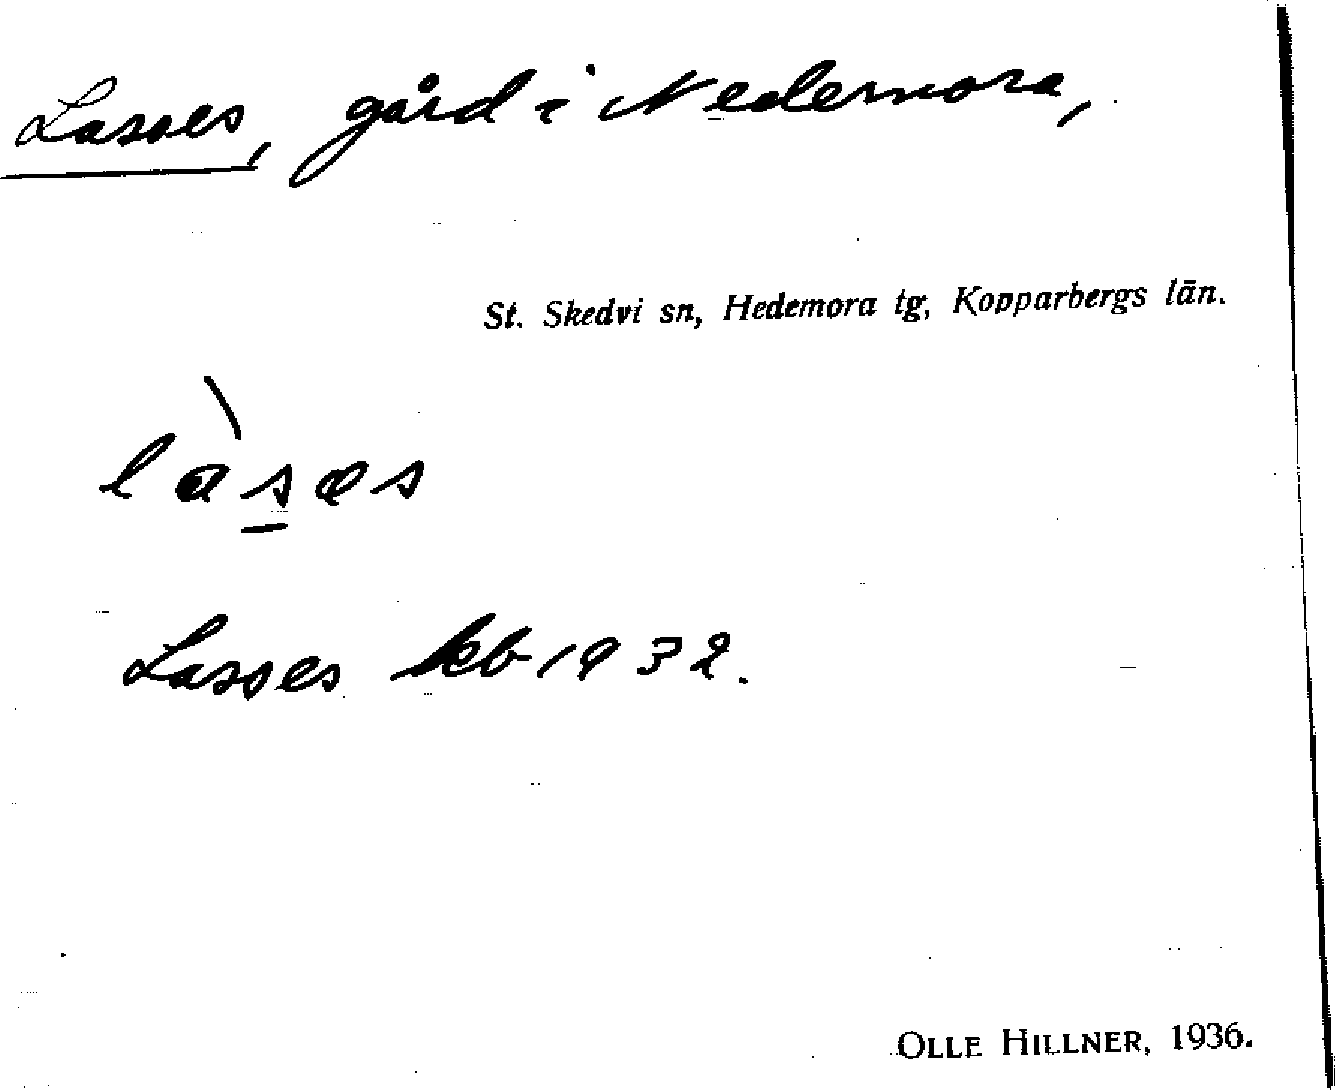 Lasses, gård i Nedernora,
St. Skedvi sn, Hedemora tg, Kopparbergs län.
làsæs
Lasses kb 1932.
OLLE HILLNER, 1936.